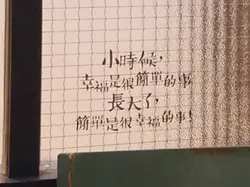 小時候，
幸福是很簡單的事
長大了，
簡單是很幸福的事！